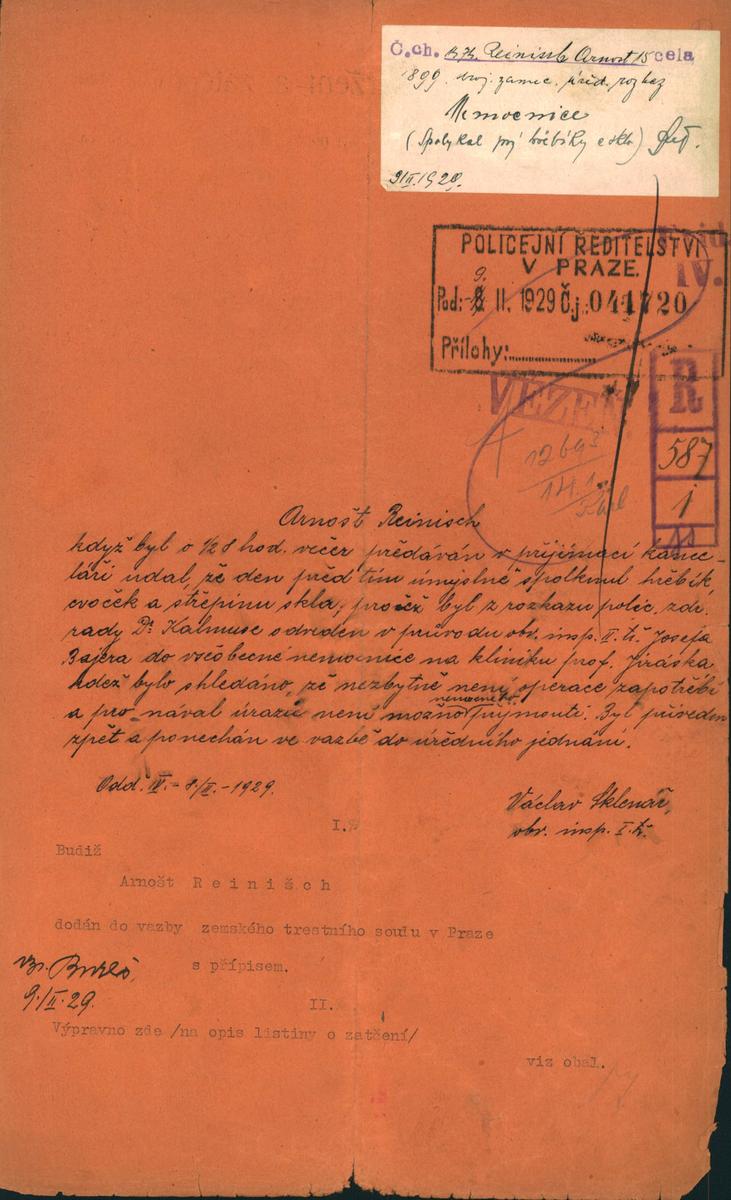 Č.ch. Reinisch Arnošt 15 cela
1899.
Nemocnice
(Spolykal prý hřebíky a sklo)
9/II.1929.
POLICEJNÍ ŘEDITELSTVÍ
V PRAZE.
9.
Pod: 8 II. 1929 Č.j.: 041720
Přílohy:
IV.
VĚZEŇ
R
587
1
11
12693
14.1.
Arnošt Reinisch
když byl o 1/2 8 hod. večer předáván v přijímací kance-
láři udal, že den před tím úmyslně spolknul hřebík,
cvoček a střepinu skla, pročež byl z rozkazu polic. zdr.
rady Dr. Kalmuse odveden v průvodu obv. insp. II. tř. Josefa
Bajera do všeobecné nemocnice na kliniku prof. Jiráska
kdež bylo shledáno, že nezbytně není operace zapotřebí
a pro nával úrazů není možno nemocného přijmouti. Byl přiveden
zpět a ponechán ve vazbě do úředního jednání.
Odd. IV. - 8/II. - 1929.
Václav Sklenář,
obv. insp. I. tř.
I.
Budiž
Arnošt Reinišch
dodán do vazby zemského trestního soudu v Praze
s přípisem.
9./II.29.
II.
Výpravno zde /na opis listiny o zatčení/
viz obal.